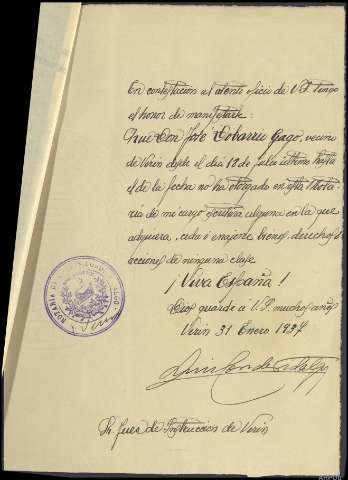 En contestación al atento oficio de V.S. tengo
el honor de manifestarle:
Que Don José Cobarru Gago, vecino
de Verín desde el día 18 de Julio último hasta
el de la fecha no ha otorgado en esta Nota-
ría de mi cargo escritura alguna en la que
adquiera, ceda ó enajene bienes, derechos ó
acciones de ninguna clase
¡Viva España!
Dios guarde á V.S. muchos años
Verín 31 Enero 1937
Luis Conde
NOTARIA DE
Verín
Sr. Juez de Instrucción de Verín